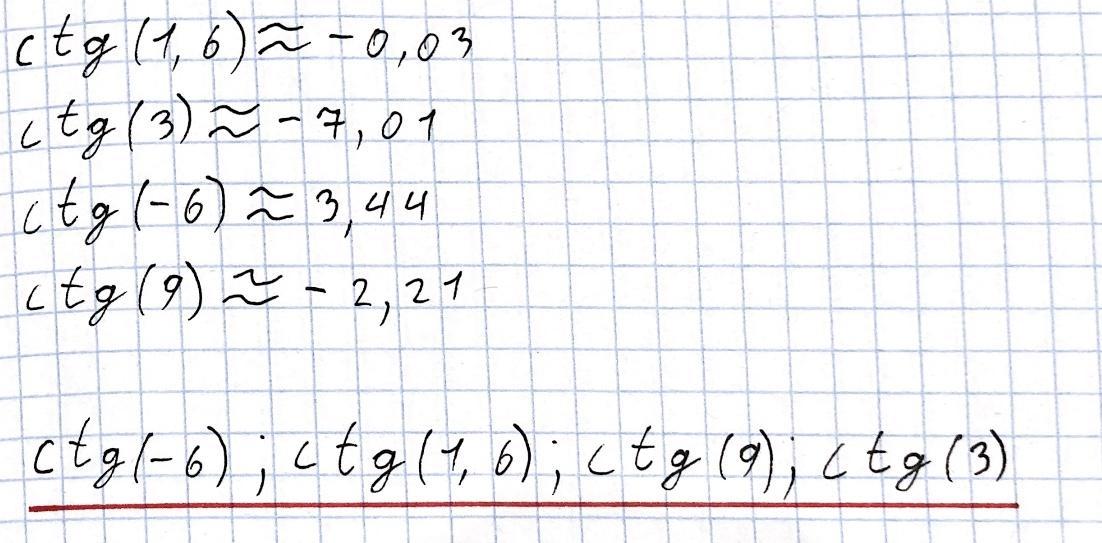 ctg(1,6)≈-0,03
ctg(3)≈-7,01
ctg(-6)≈3,44
ctg(9)≈-2,21
ctg(-6); ctg(1,6); ctg(9); ctg(3)